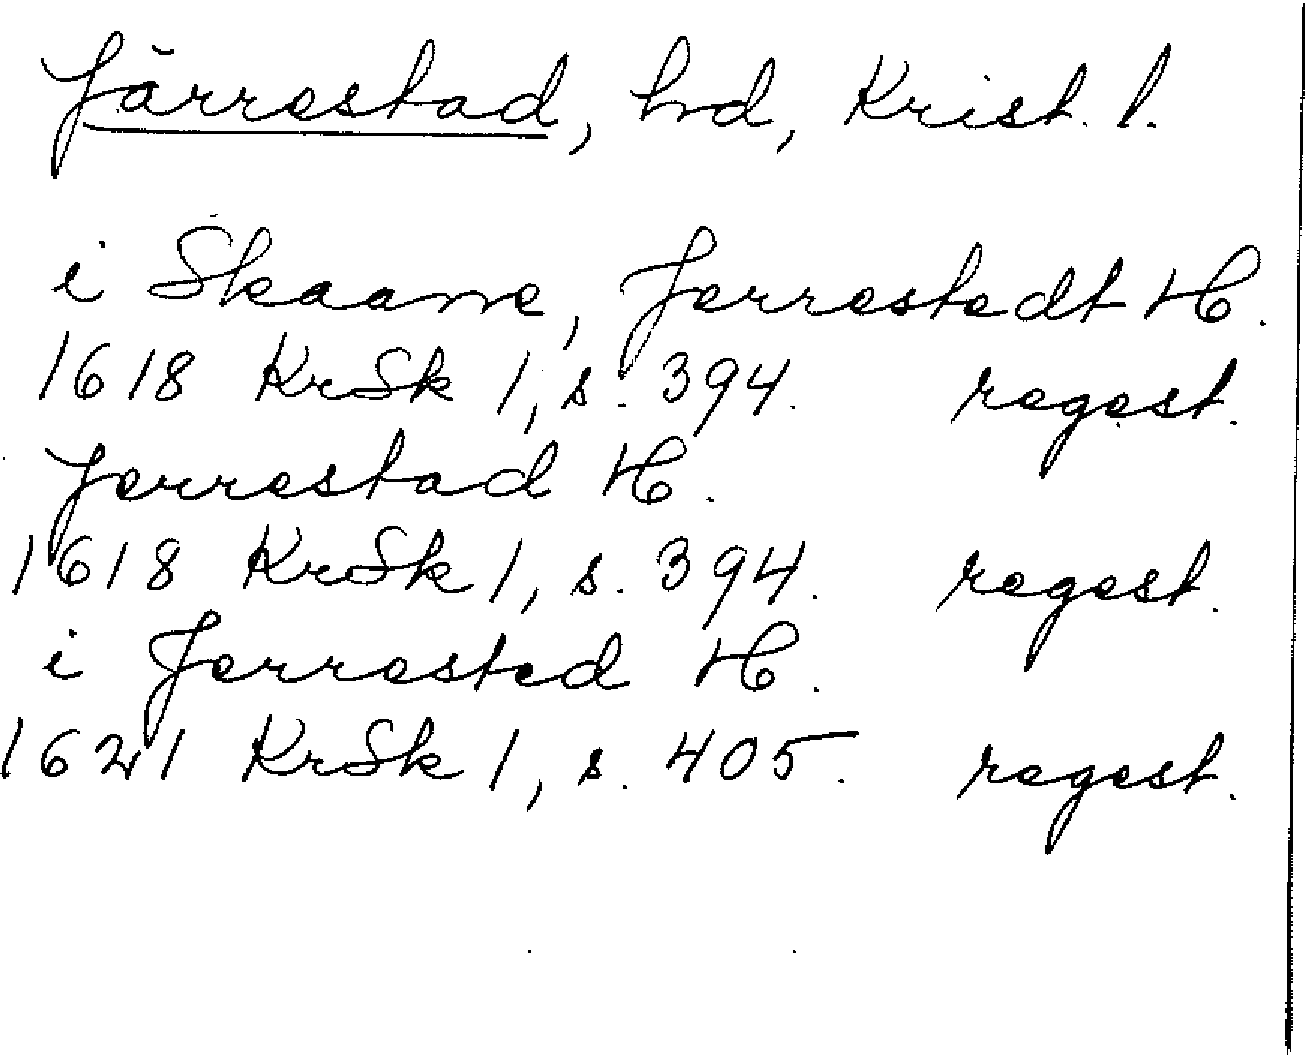 Järrestad, hd, Krist. l.
i Skaane, Jerrestedt H.
1618 KrSk 1, s. 394. regest.
Jerrestad H.
1618 KrSk 1, s. 394. regest.
i Jerrested H.
1621 KrSk 1, s. 405. regest.